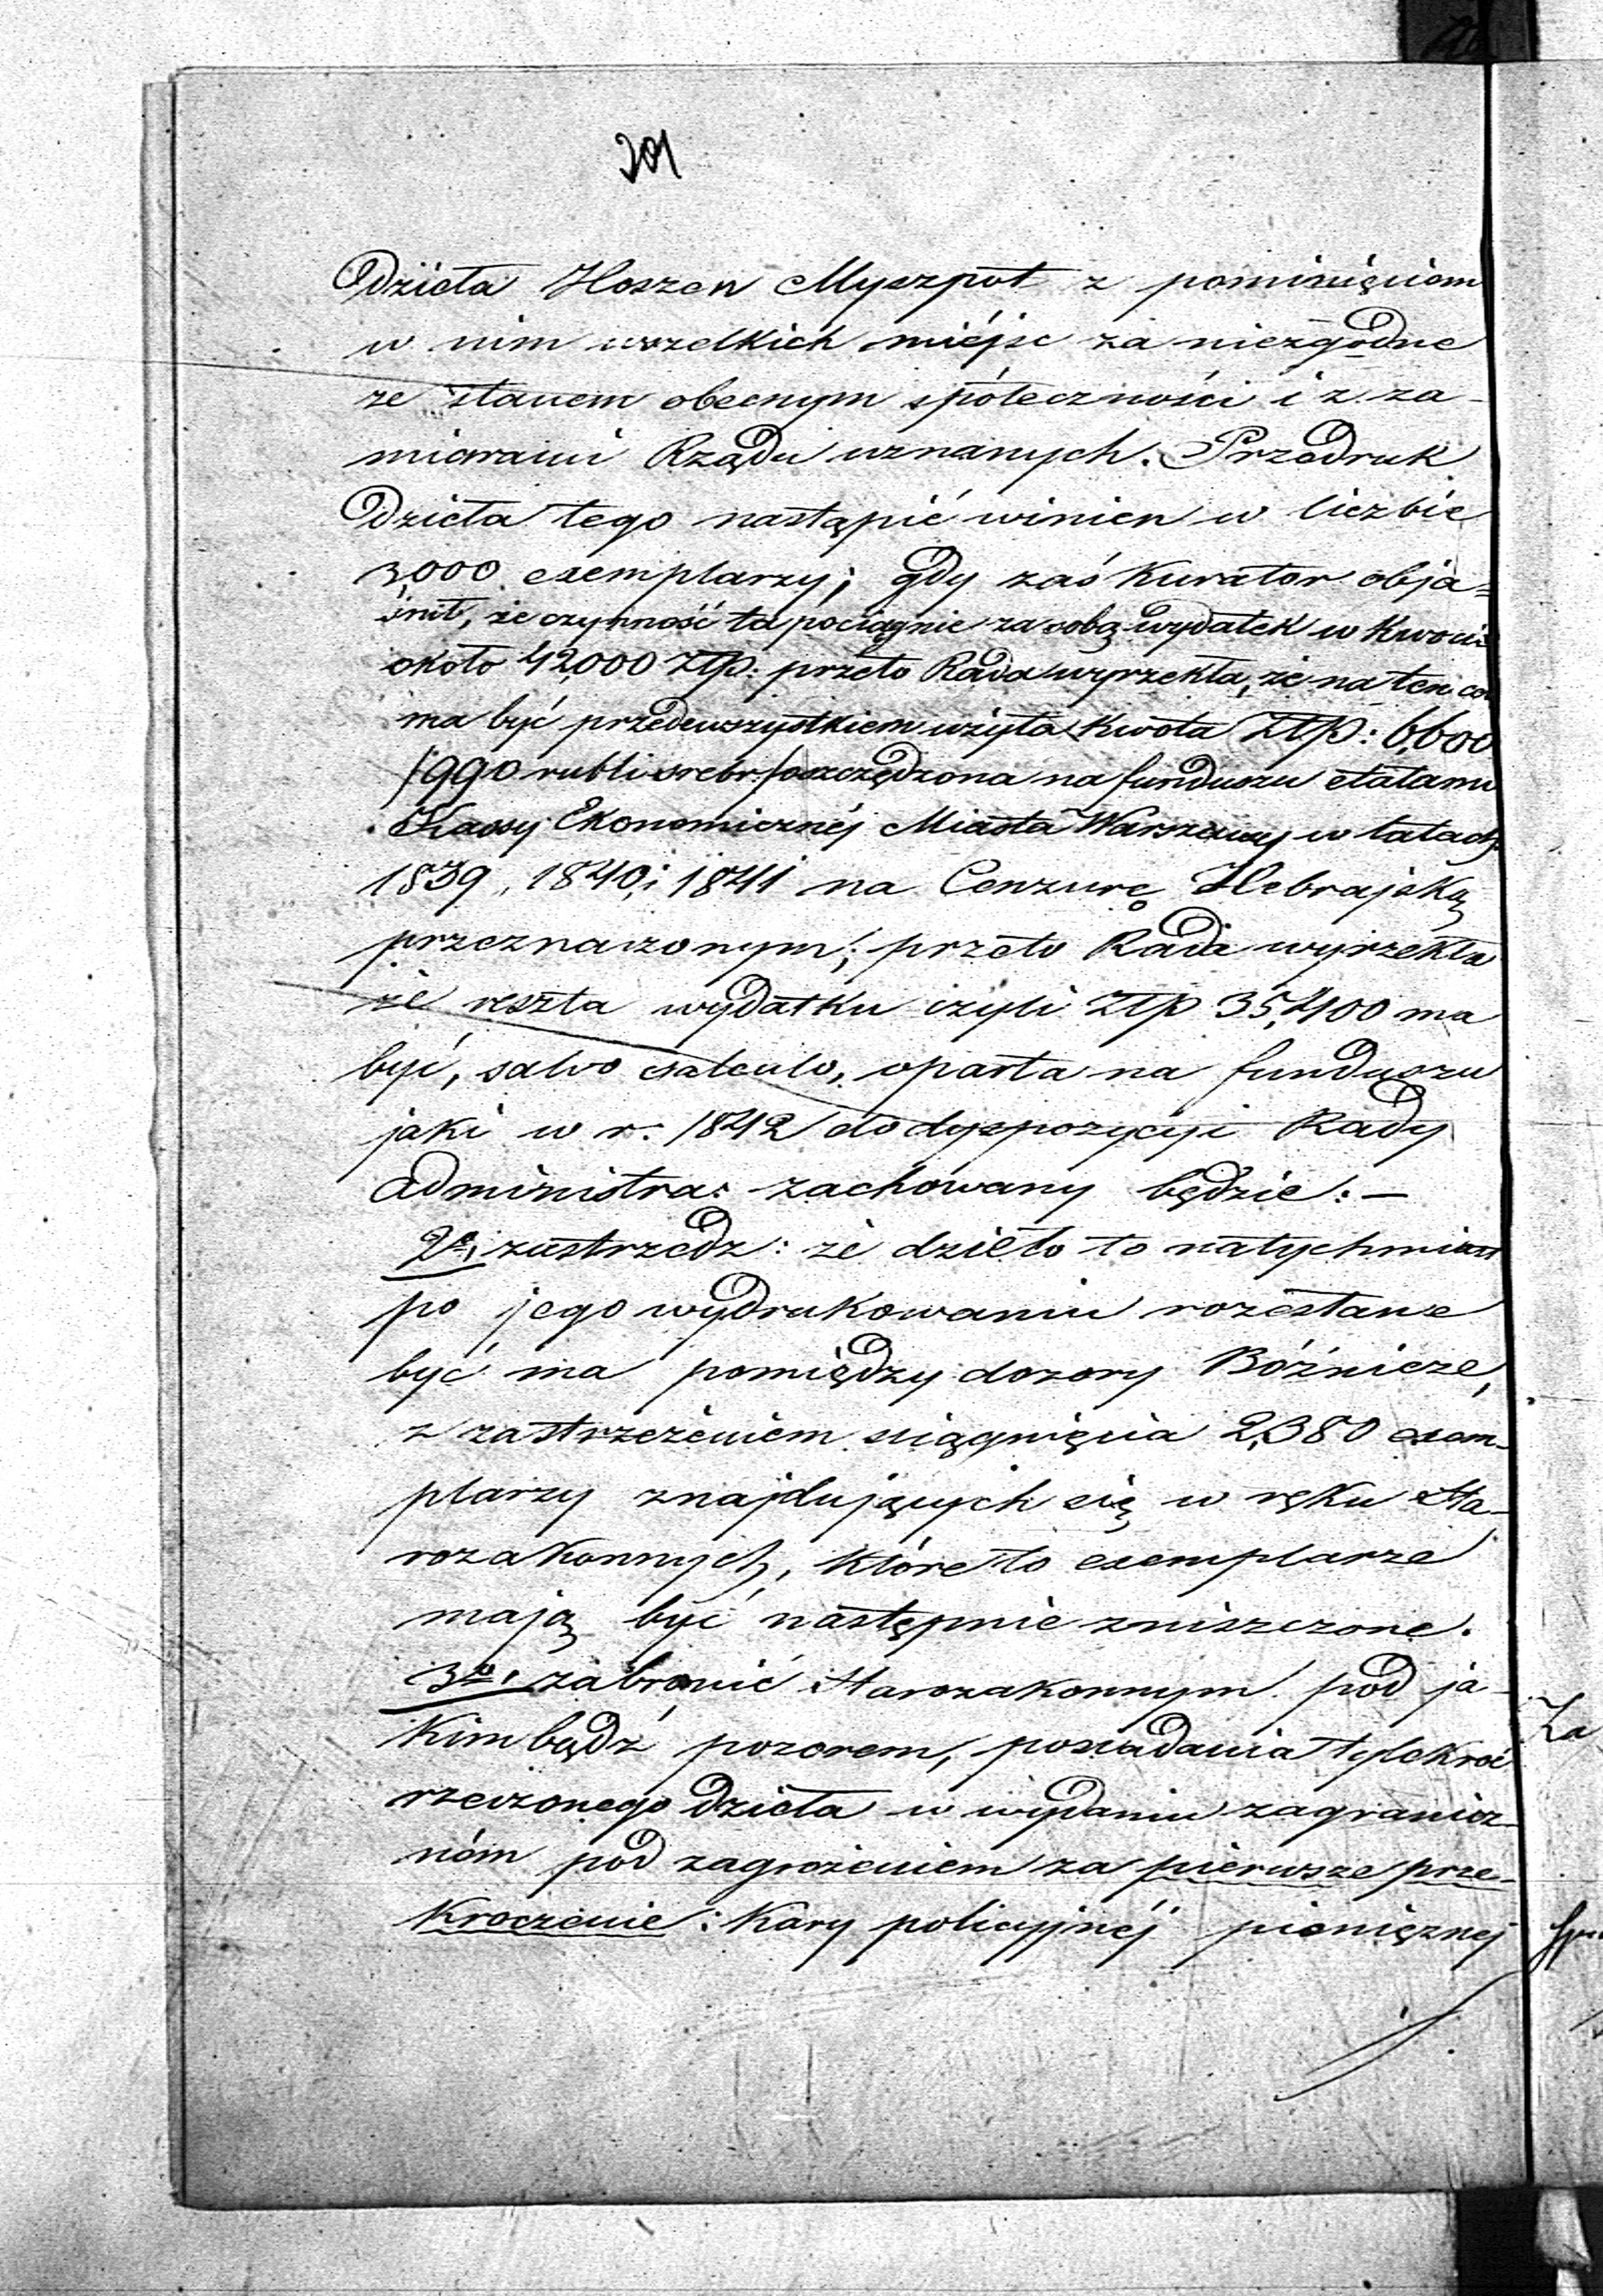 201
Dzieła Hoszen Myszpot z pominięciem
w nim wszelkich miejsc za niezgodne
ze stanem obecnym społeczności i z za-
miarami Rządu uznanych. Przedruk
Dzieła tego nastąpić winien w liczbie
3000 exemplarzy; gdy zaś Kurator obja=
śnił, że czynność ta pociągnie za sobą wydatek w kwocie
około 42,000 Złp: przeto Rada wyrzekła, że na ten cel
ma być przedewszystkiem użyta kwota Złp: 6,600
/990 rubli srebr/ oszczędzona na funduszu etatami
Kassy Ekonomicznéj Miasta Warszawy w latach
1839, 1840, i 1841 na Cenzurę Hebrajską
przeznaczonym; przeto Rada wyrzekła
że reszta wydatku czyli Złp 35,400 ma
być, salvo calculo, oparta na funduszu
jaki w r. 1842 do dyspozycyi Rady
Administra: zachowany będzie: —
2e, zastrzedz: że dzieło to natychmiast
po jego wydrukowaniu rozesłane
być ma pomiędzy dozory Bóżnicze,
z zastrzeżeniem ściągnięcia 2,380 exem-
plarzy znajdujących się w ręku Sta-
rozakonnych, które to exemplarze
mają być następnie zniszczone.
3o, zabronić Starozakonnym pod ja-
kimbądź pozorem, posiadania tylekroć
rzeczonego dzieła w wydaniu zagranicz-
ném pod zagrożeniem za pierwsze prze-
kroczenie: Kary policyjnéj pieniężnej
Za